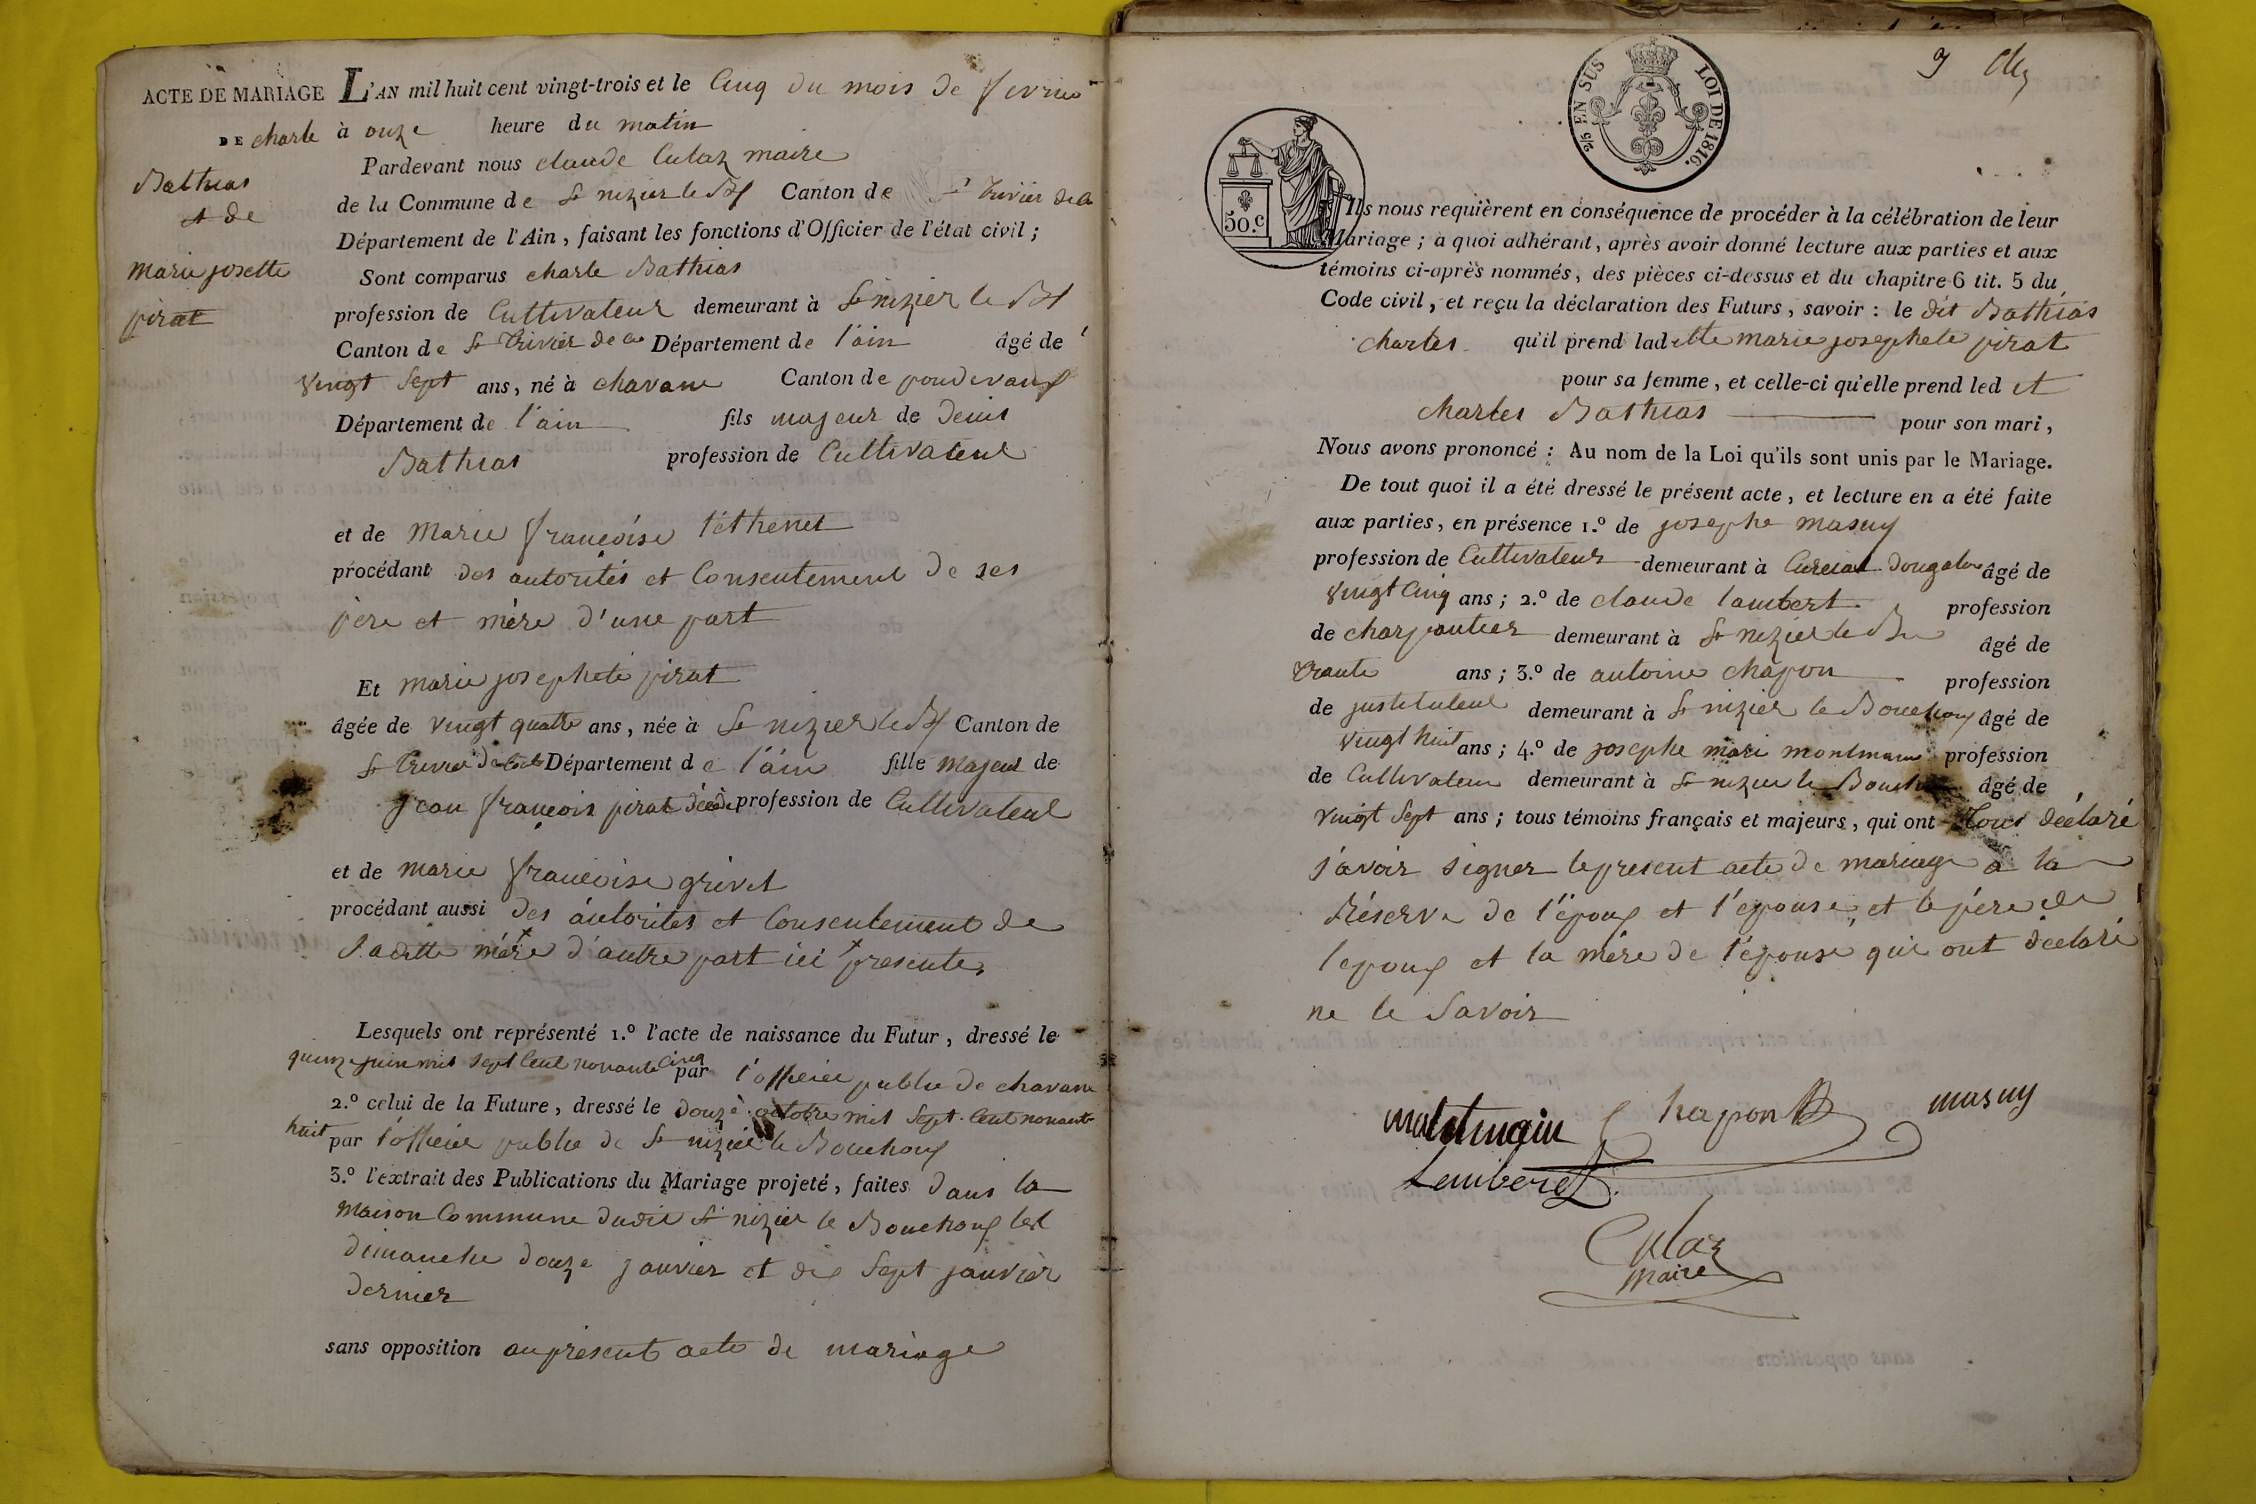 ACTE DE MARIAGE
DE charle
Bathias
et de
marie josette
pirat
L'AN mil huit cent vingt-trois et le Cinq du mois de fevrier
à onze heure du matin
Pardevant nous claude Culaz maire
de la Commune de St nizier le Bx Canton de St Trivier de
Département de l'Ain, faisant les fonctions d'Officier de l'état civil;
Sont comparus charle Bathias
profession de Cultivateur demeurant à St nizier le Bx
Canton de St Trivier de Département de l'ain âgé de
vingt sept ans, né à chavane Canton de pondevaux
Département de l'ain fils majeur de Denis
Bathias profession de Cultivateur
et de Marie françoise téthenet
procédant des autorités et Consentement de ses
père et mère d'une part
Et marie josephete pirat
âgée de vingt quatre ans, née à St nizier le Bx Canton de
St Trivier Département de l'ain fille majeur de
jean françois pirat décédé profession de Cultivateur
et de marie françoise grivet
procédant aussi des autorités et Consentement de
sa ditte mère d'autre part ici presente,
Lesquels ont représenté 1.º l'acte de naissance du Futur, dressé le
quinze juin mil sept Cent novante Cinq par l'officier public de chavane
2.º celui de la Future, dressé le douze octobre mil Sept Cent novante
huit par l'officier public de St nizier le Bouchoux
3.º l'extrait des Publications du Mariage projeté, faites dans la
maison Commune dudit St nizier le Bouchoux les
dimanche douze janvier et dix Sept janvier
dernier
sans opposition au présent acte de mariage
9
2/5 EN SUS LOI DE 1816.
50.c
Ils nous requièrent en conséquence de procéder à la célébration de leur
Mariage; à quoi adhérant, après avoir donné lecture aux parties et aux
témoins ci-après nommés, des pièces ci-dessus et du chapitre 6 tit. 5 du
Code civil, et reçu la déclaration des Futurs, savoir: le dit Bathias
charles qu'il prend ladette marie josephete pirat
pour sa femme, et celle-ci qu'elle prend led it
charles Bathias pour son mari,
Nous avons prononcé: Au nom de la Loi qu'ils sont unis par le Mariage.
De tout quoi il a été dressé le présent acte, et lecture en a été faite
aux parties, en présence 1.º de josephe masuy
profession de Cultivateur demeurant à Curciat dongalon âgé de
vingt Cinq ans; 2.º de claude lambert profession
de charpantier demeurant à St nizier le Bx âgé de
trante ans; 3.º de antoine chapon profession
de justituteur demeurant à St nizier le Bouchoux âgé de
vingt huit ans; 4.º de josephe mari montmain profession
de Cultivateur demeurant à St nizier le Bouchoux âgé de
vingt Sept ans; tous témoins français et majeurs, qui ont Tous déclaré
savoir signer le present acte de mariage a la
Réserve de l'époux et l'epouse, et le père de
l'epoux et la mère de l'épouse qui ont déclaré
ne le Savoir
montmain Chapon masuy
Lamberet
Culaz
maire